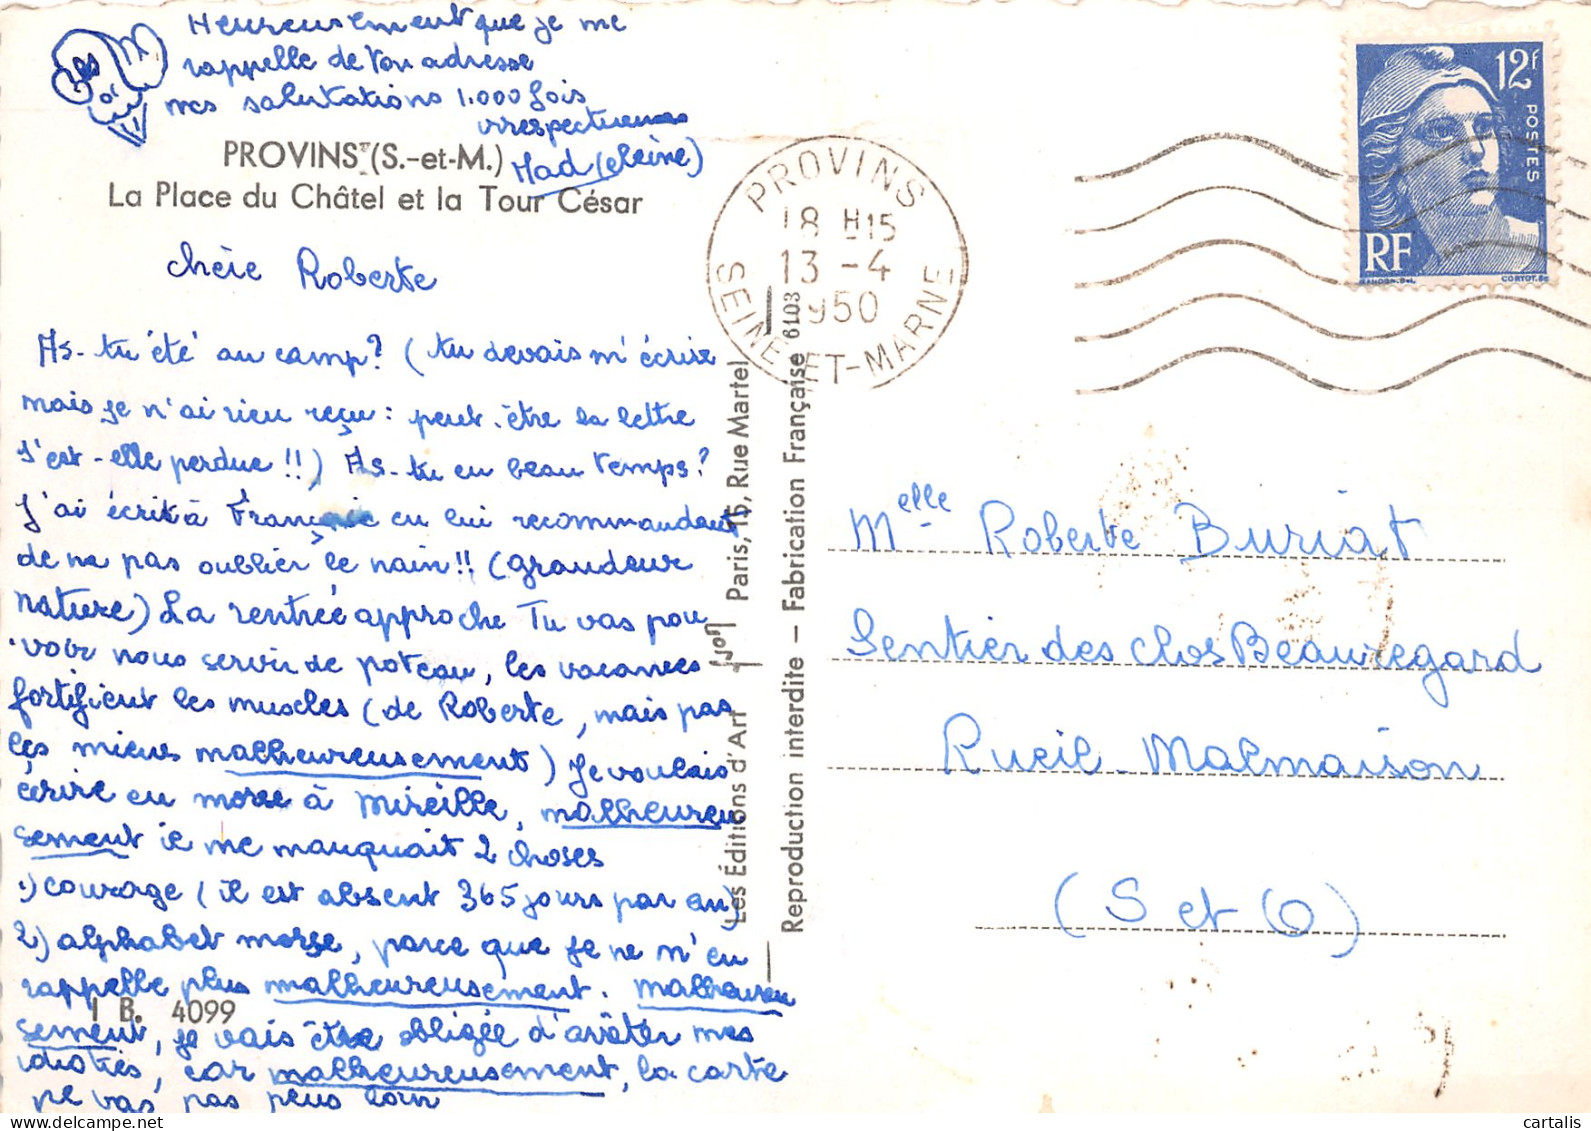 Heureusement que je me
rappelle de ton adresse
mes salutations 1.000 fois
irrespectueuses
Mad (eleine)
PROVINS (S.-et-M.)
La Place du Châtel et la Tour César
chère Roberte
As-tu été au camp? (tu devais m'écrire
mais je n'ai rien reçu : peut-être la lettre
s'est-elle perdue !!) As-tu eu beau temps?
J'ai écrit à Françoise en lui recommandant
de ne pas oublier le nain!! (grandeur
nature) La rentrée approche Tu vas pou
voir nous servir de poteau, les vacances
fortifient les muscles (de Roberte, mais pas
les miens malheureusement) Je voulais
écrire en morse à Mireille, malheureu
sement il me manquait 2 choses
1) courage (il est absent 365 jours par an)
2) alphabet morse, parce que je ne m'en
rappelle plus malheureusement. Malheureu
sement, je vais être obligée d'arrêter mes
idioties, car malheureusement, la carte
ne vas pas plus loin
I B. 4099
Les Éditions d'Art Yvon Paris, 15, Rue Martel
Reproduction interdite — Fabrication Française 6103
PROVINS
18 H15
13 -4
1950
SEINE-ET-MARNE
12f
POSTES
RF
GANDON.DEL.
CORTOT.SC
Melle Roberte Buriat
Sentier des clos Beauregard
Rueil-Malmaison
(S et O)
cartalis